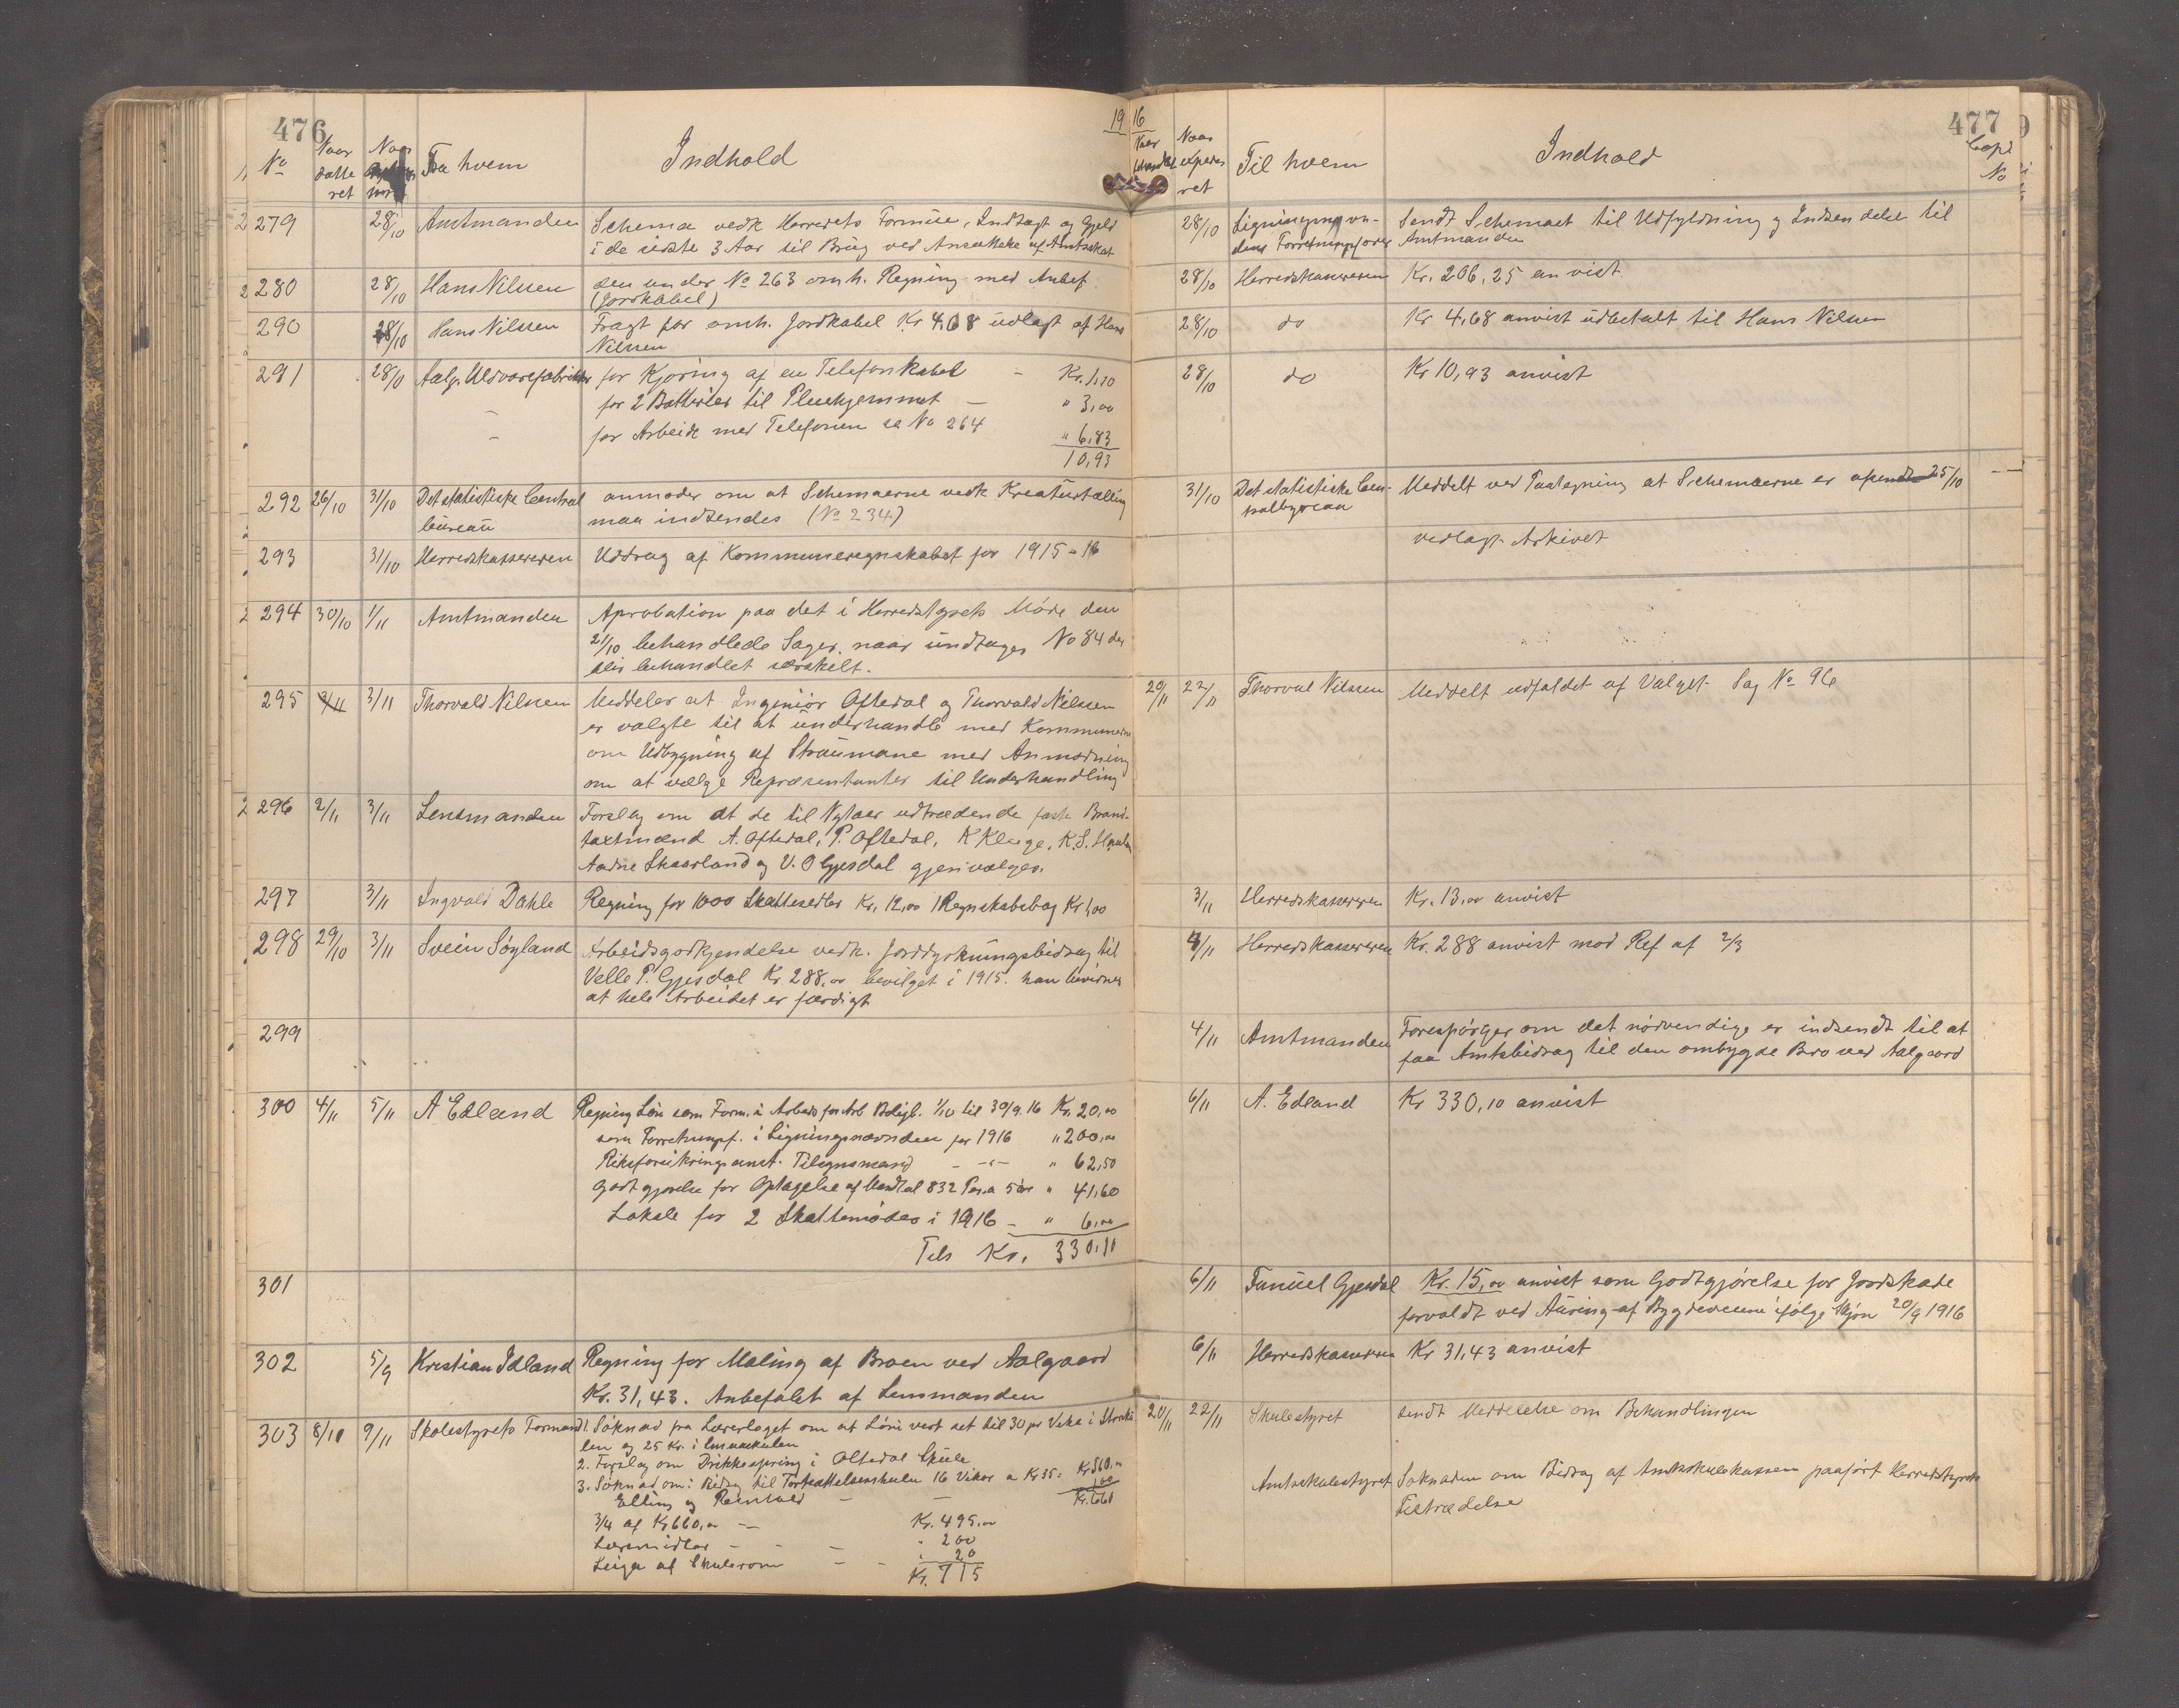 476
19 16
477
No
Naar datte ret
Naar
Fra hvem
Indhold
Naar behandlet
Naar expede ret
Til hvem
Indhold
Copi No
279 28/10 Amtmanden Schema vedk Herredets Formue, Indtægt og Gjeld
i de sidste 3 Aar til Brug ved Ansættelse af Amtsskat
28/10 Ligningsnævn- Sendt Schemaet til Udfyldning og Indsendelse til
dens Forretningsfører Amtmanden
280 28/10 Hans Nilssen sen under No 263 omh. Regning med Anbef
(Jordkabel)
28/10 Herredskassereren Kr. 206,25 anvist
290 28/10 Hans Nilssen Fragt for omh. Jordkabel Kr 4,68 udlagt af Hans
Nilssen
28/10 do Kr 4,68 anvist udbetalt til Hans Nilssen
291 28/10 Aalg. Uldvarefabrikker for Kjøring af en Telefonkabel - Kr. 1,10
for 2 Batterier til Pleiehjemmet - " 3,00
- for Arbeide med Telefonen se No 264 " 6,83
10,93
28/10 do Kr 10,93 anvist
292 26/10 31/10 Det statistiske Central anmoder om at Schemaerne vedk Kreaturtælling
bureau maa indsendes (No 234)
31/10 Det statistiske Cen- Meddelt ved Paategning at Schemaerne er afsendt 25/10 --
tralbyreau
293 31/10 Herredskassereren Uddrag af Kommuneregnskabet for 1915-16
vedlagt Arkivet
294 30/10 1/11 Amtmanden Aprobation paa det i Herredstyrets Møde den
21/10 behandlede Sager, naar undtages No 84 der
blir behandlet særskilt.
295 3/11 Thorvald Nilssen Meddeler at Ingeniør Oftedal og Thorvald Nilssen
er valgte til at underhandle med Kommunen
om Udbygning af Straumane med Anmodning
om at vælge Repræsentanter til Underhandling
20/11 22/11 Thorval Nilssen Meddelt udfaldet af Valget Sag No 96
296 2/11 3/11 Lensmanden Forslag om at de til Nytaar udtrædende faste Brand-
taxtmænd A. Oftedal, P. Oftedal, K Kluge, K.S.
Aadne Skaarland og V. O Gjesdal gjenvælges.
297 3/11 Ingvald Dahle Regning for 1000 Skattesedler Kr. 12,00 1 Regnskabsbog Kr 1,00
3/11 Herredskassereren Kr. 13,00 anvist
298 29/10 3/11 Svein Søyland Arbeidsgodkjendelse vedk. Jorddyrkningsbidrag til
Velle P. Gjesdal Kr. 288,00 bevilget i 1915. han bevidner
at hele Arbeidet er færdigt
4/11 Herredskassereren Kr. 288 anvist mod Ref af 2/3
299
4/11 Amtmanden Forespørger om det nødvendige er indsendt til at
faa Amtsbidrag til den ombygde Bro ved Aalgaard
300 4/11 5/11 A Edland Regning Løn som Form. i Arbeds for Arb Bolig. 1/10 til 30/9.16 Kr. 20,00
som Forretningsf. i Ligningsnævnden for 1916 " 200,00
Riksforsikringsanst. Tilsynsmand - -"- " 62,50
Godtgjørelse for Optagelse af Mandtal 832 Pers.a 5 øre " 41,60
Lokale for 2 Skattemøder i 1916 - " 6,00
Tils Kr. 330,10
6/11 A. Edland Kr 330,10 anvist
301
6/11 Tanuel Gjesdal Kr. 15,00 anvist som Godtgjørelse for Jordskade
forvoldt ved Auring af Bygdeveiene ifølge Skjøn 20/9 1916
302 5/9 Kristian Idland Regning for Maling af Broen ved Aalgaard
Kr. 31,43. Anbefalet af Lensmanden
6/11 Herredskassereren Kr 31,43 anvist
303 8/11 9/11 Skolestyrets Formand 1. Søknad fra Lærerlaget om at Løni vert set til 30 pr Veke i Storsku
len og 25 Kr. i Smaaskulen
2. Forslag om Drikkespring i Oltedal Skule
3. Søknad om: Bidrag til Fortsættelsesskulen 16 Vikor a Kr 35: Kr 560,00
Elling og Reinhald - - 100
Kr. 660
3/4 af Kr 660,00 - Kr. 495,00
Læremidlar - - - " 200
Leiga af Skulerom - - " 20
Kr. 715
20/11 22/11 Skulestyret sendt Meddelelse om Behandlingen
Amtsskulestyret Søknaden om Bidrag af Amtsskulekassen paaført Herredstyrets
Tiltrædelse